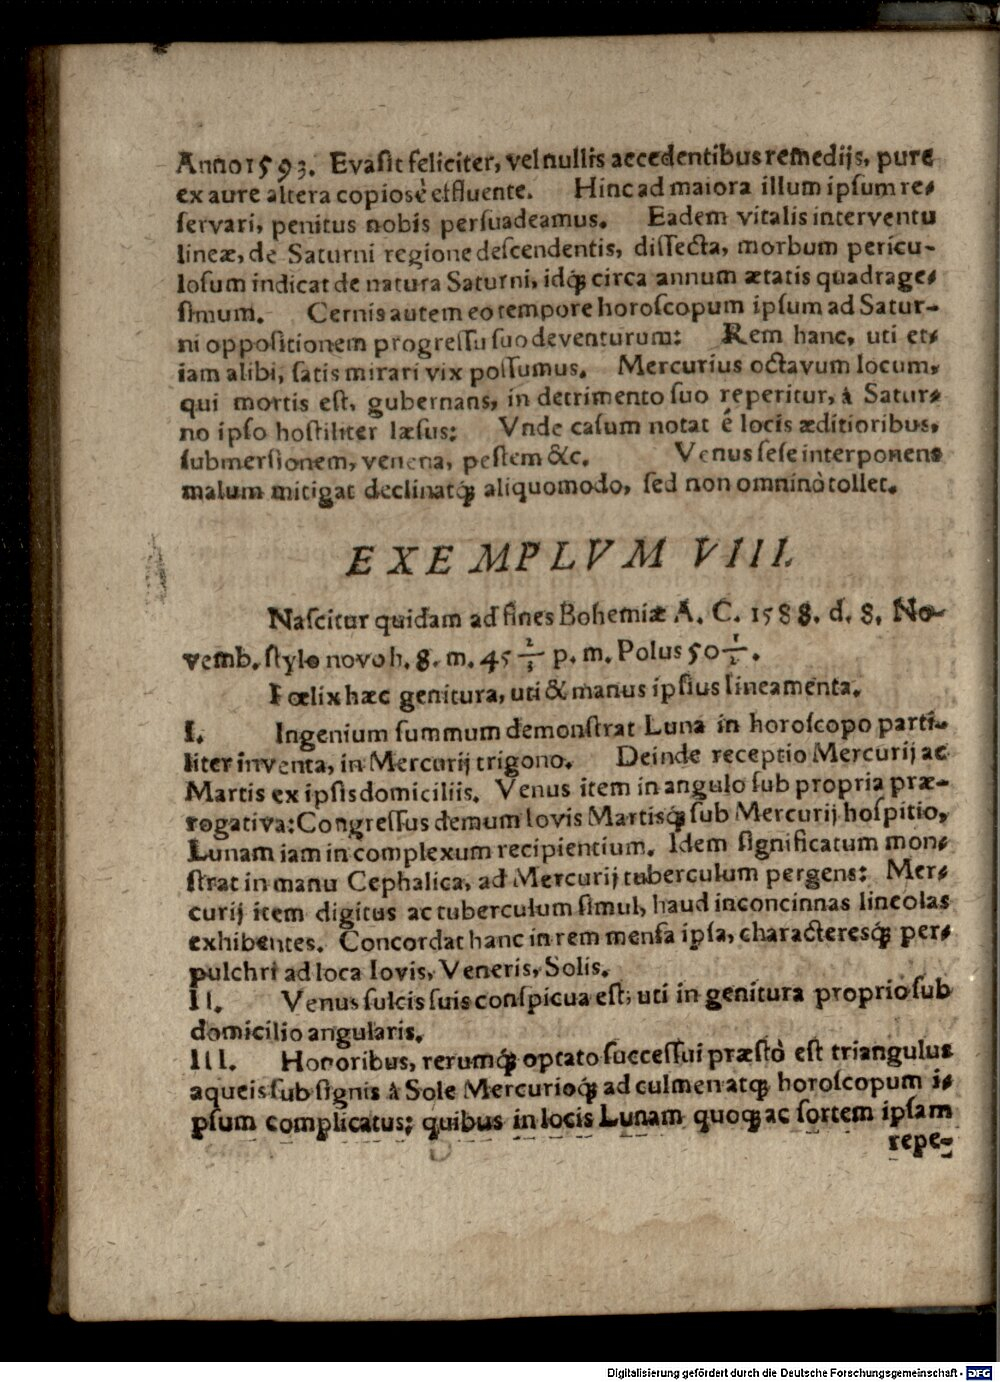 Anno 1593. Evaſit feliciter, vel nullis accedentibus remedijs, pure
ex aure altera copiosè effluente. Hinc ad maiora illum ipſum re-
ſervari, penitus nobis perſuadeamus. Eadem vitalis interventu
lineæ, de Saturni regione deſcendentis, diſſecta, morbum pericu-
loſum indicat de natura Saturni, idq́; circa annum ætatis quadrage-
ſimum. Cernis autem eo tempore horoſcopum ipſum ad Satur-
ni oppoſitionem progreſſu ſuo deventurum: Rem hanc, uti et-
iam alibi, ſatis mirari vix poſſumus. Mercurius octavum locum,
qui mortis eſt, gubernans, in detrimento ſuo reperitur, à Satur-
no ipſo hoſtiliter læſus: Vnde caſum notat è locis æditioribus,
ſubmerſionem, venena, peſtem &c. Venus ſeſe interponens
malum mitigat declinatq́; aliquomodo, ſed non omninò tollet.
EXEMPLVM VIII.
Naſcitur quidam ad fines Bohemiæ A. C. 1588. d. 8. No-
vemb. ſtylo novo h. 8. m. 45 2/3 p. m. Polus 50 1/2.
Fœlix hæc genitura, uti & manus ipſius lineamenta.
I. Ingenium ſummum demonſtrat Luna in horoſcopo parti-
liter inventa, in Mercurij trigono. Deinde receptio Mercurij ac
Martis ex ipſis domiciliis. Venus item in angulo ſub propria præ-
rogativa: Congreſſus demum Iovis Martisq́; ſub Mercurij hoſpitio,
Lunam iam in complexum recipientium. Idem ſignificatum mon-
ſtrat in manu Cephalica, ad Mercurij tuberculum pergens: Mer-
curij item digitus ac tuberculum ſimul, haud inconcinnas lineolas
exhibentes. Concordat hanc in rem menſa ipſa, characteresq́; per-
pulchri ad loca Iovis, Veneris, Solis.
II. Venus ſulcis ſuis conſpicua eſt, uti in genitura proprio ſub
domicilio angularis.
III. Honoribus, rerumq́; optato ſucceſſui præſtò eſt triangulus
aqueis ſub ſignis à Sole Mercurioq́; ad culmen atq́; horoſcopum i-
pſum complicatus; quibus in locis Lunam quoq́; ac ſortem ipſam
repe-
Digitalisierung gefördert durch die Deutsche Forschungsgemeinschaft - DFG